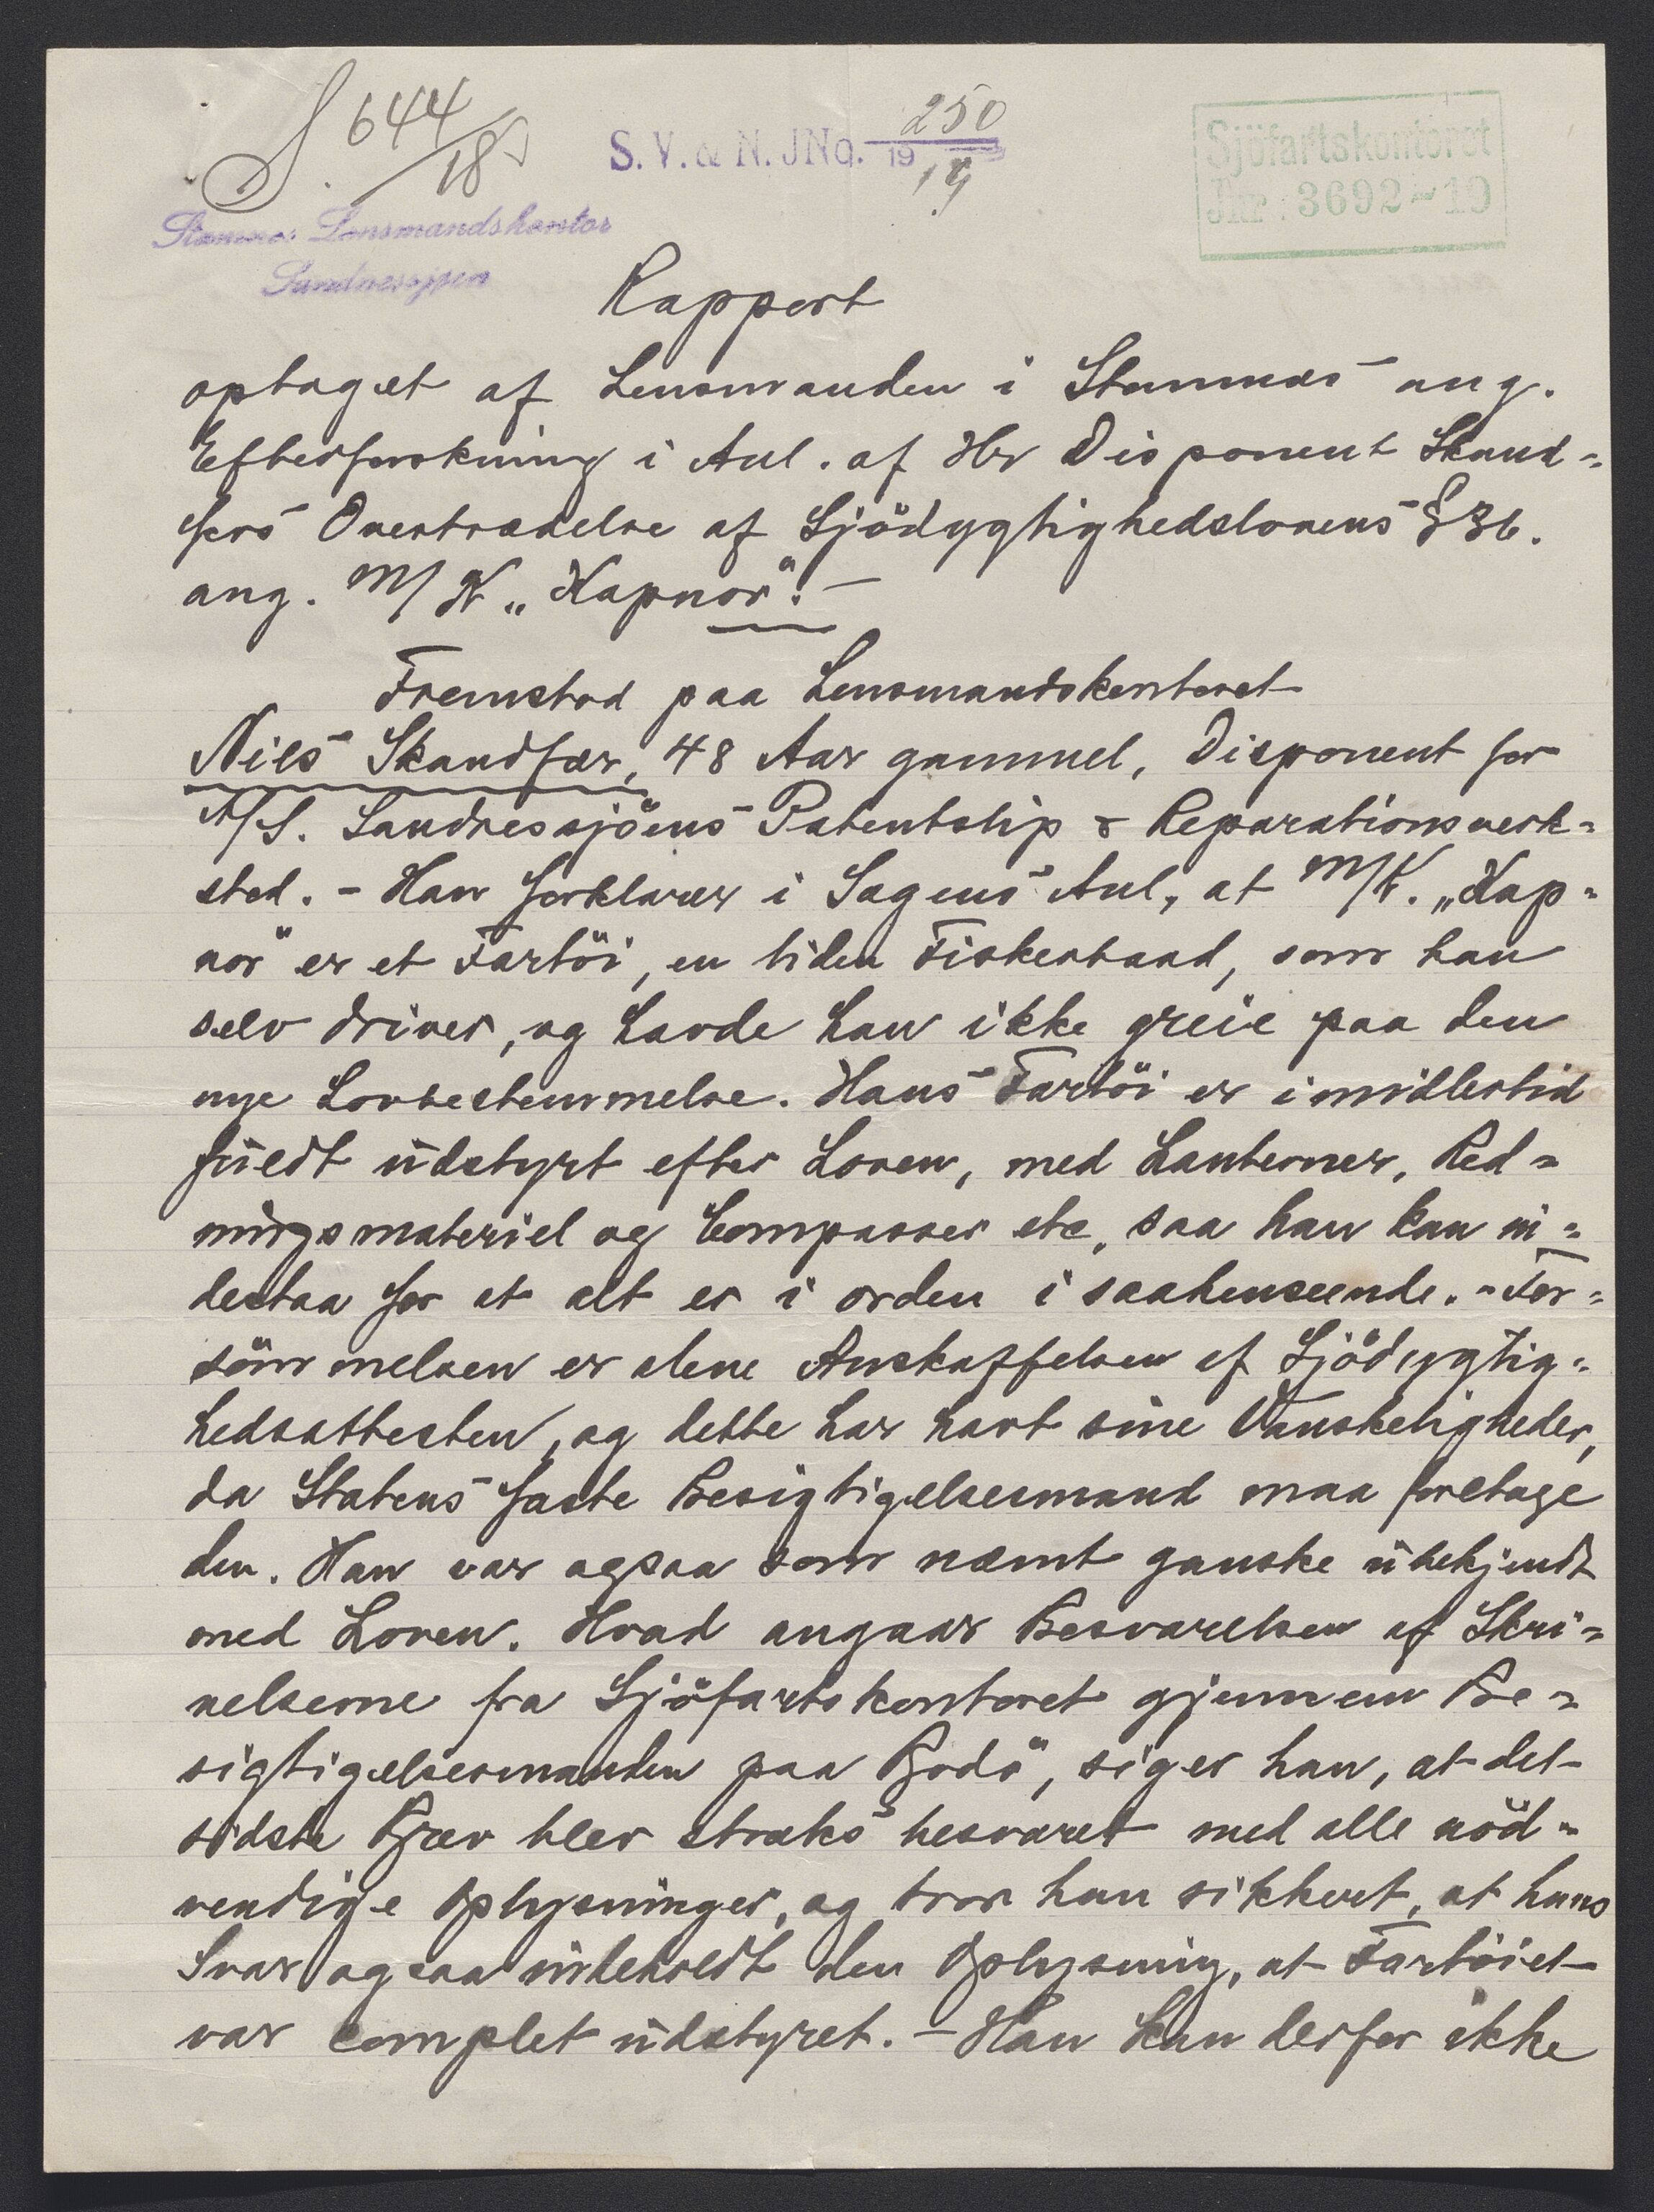 S. 644/18
S. V. & N. JNo. 250/1919
Sjöfartskontoret
Jnr: 3692-19
Stamnes Lensmandskontor
Sandnessjøen
Rapport
optaget af Lensmanden i Stamnes ang.
Efterforskning i Anl. af Hr Disponent Skand-
fers Overtrædelse af Sjödygtighedslovens § 36.
ang. M/K "Hapnor". -
Fremstod paa Lensmandskontoret
Nils Skandfer, 48 Aar gammel, Disponent for
A/S. Sandnessjöens Patentslip & Reparationsverk-
sted. - Han forklarer i Sagens Anl, at M/K. "Hap-
nor" er et Fartöi, en liden Fiskerbaad, som han
selv driver, og havde han ikke greie paa den
nye Lovbestemmelse. Hans Fartöi er imidlertid
fuldt udstyrt efter Loven, med Lanterner, Red-
ningsmateriel og Compasser etc, saa han kan in-
destaa for at alt er i orden i saahenseende. - For-
sömmelsen er alene Anskaffelsen af Sjödygtig-
hedsattesten, og dette har havt sine Vanskeligheder,
da Statens faste Besigtigelsesmand maa foretage
den. Han var ogsaa som nævnt ganske ubekjendt
med Loven. Hvad angaar Besvarelsen af Skri-
velserne fra Sjöfartskontoret gjennem Be-
sigtigelsesmanden paa Bodö, siger han, at det
sidste Brev blev straks besvaret med alle nöd-
vendige Oplysninger, og tror han sikkert, at hans
Svar ogsaa indeholdt den Oplysning, at Fartöiet
var complet udstyret. - Han kan derfor ikke